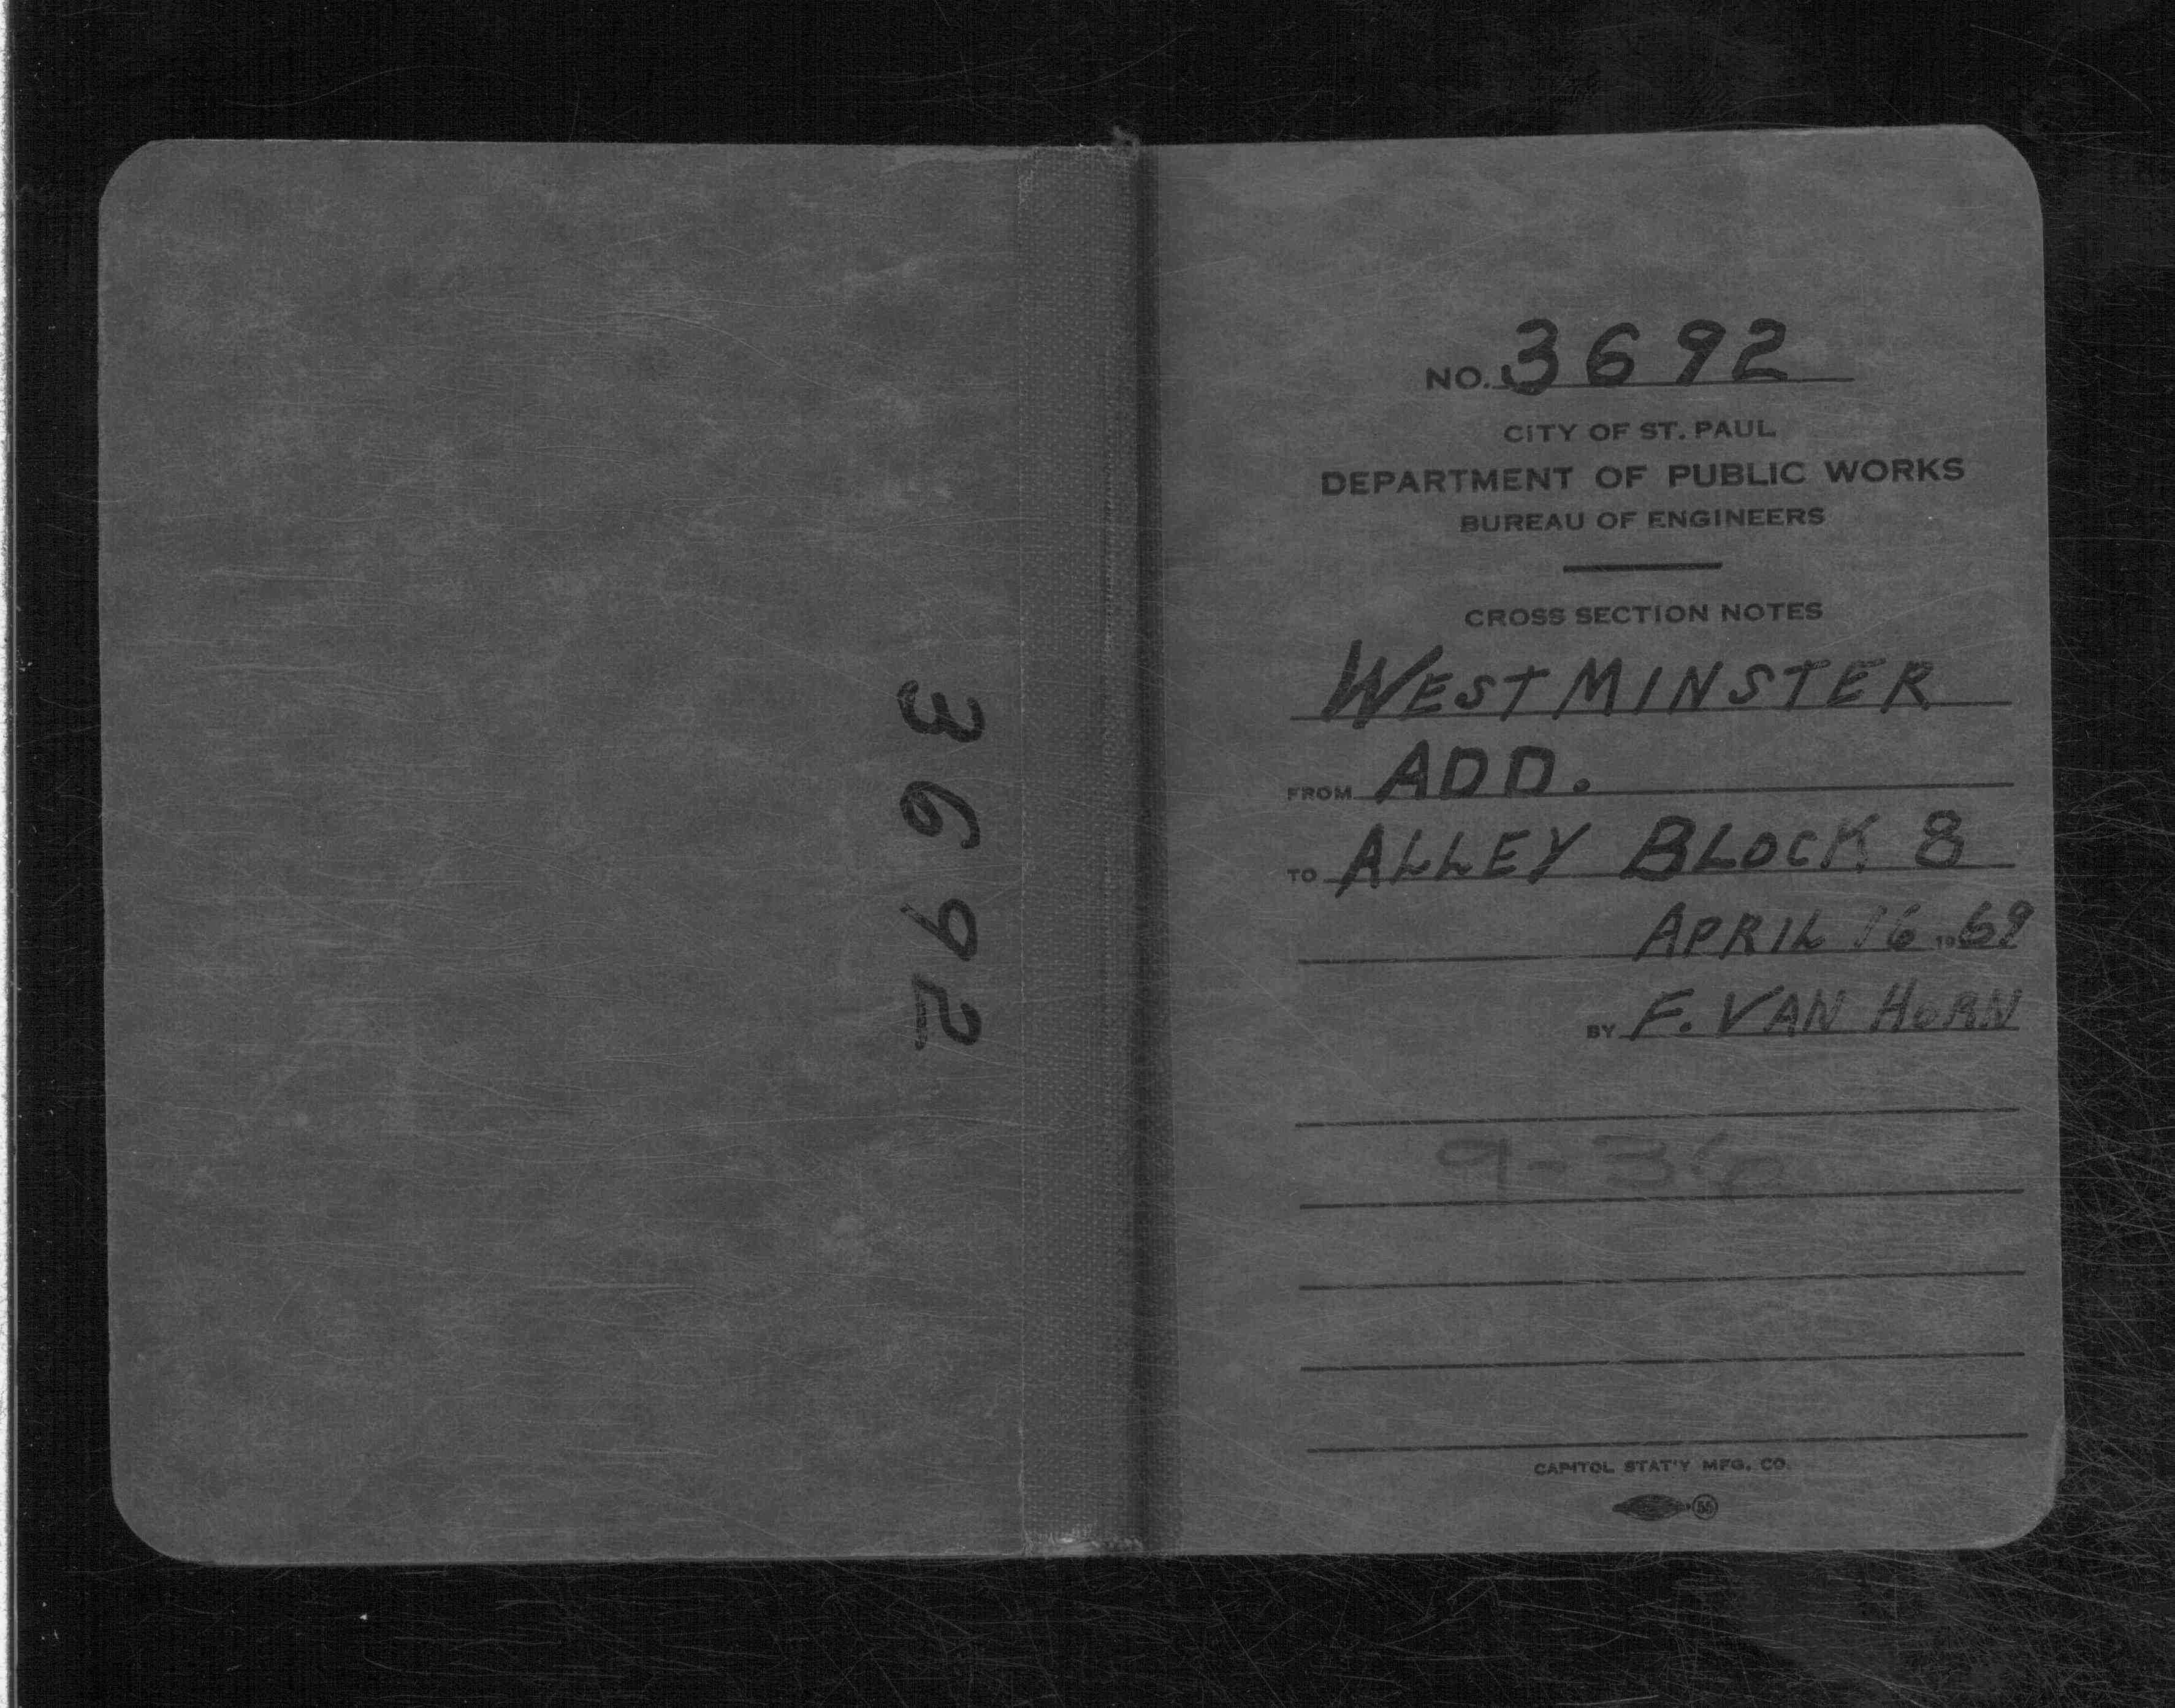 3692
NO. 3692
CITY OF ST. PAUL
DEPARTMENT OF PUBLIC WORKS
BUREAU OF ENGINEERS
CROSS SECTION NOTES
WESTMINSTER
FROM ADD.
TO ALLEY BLOCK 8
APRIL 16 1969
BY F. VAN HORN
9-36
CAPITOL STAT'Y MFG. CO.
55